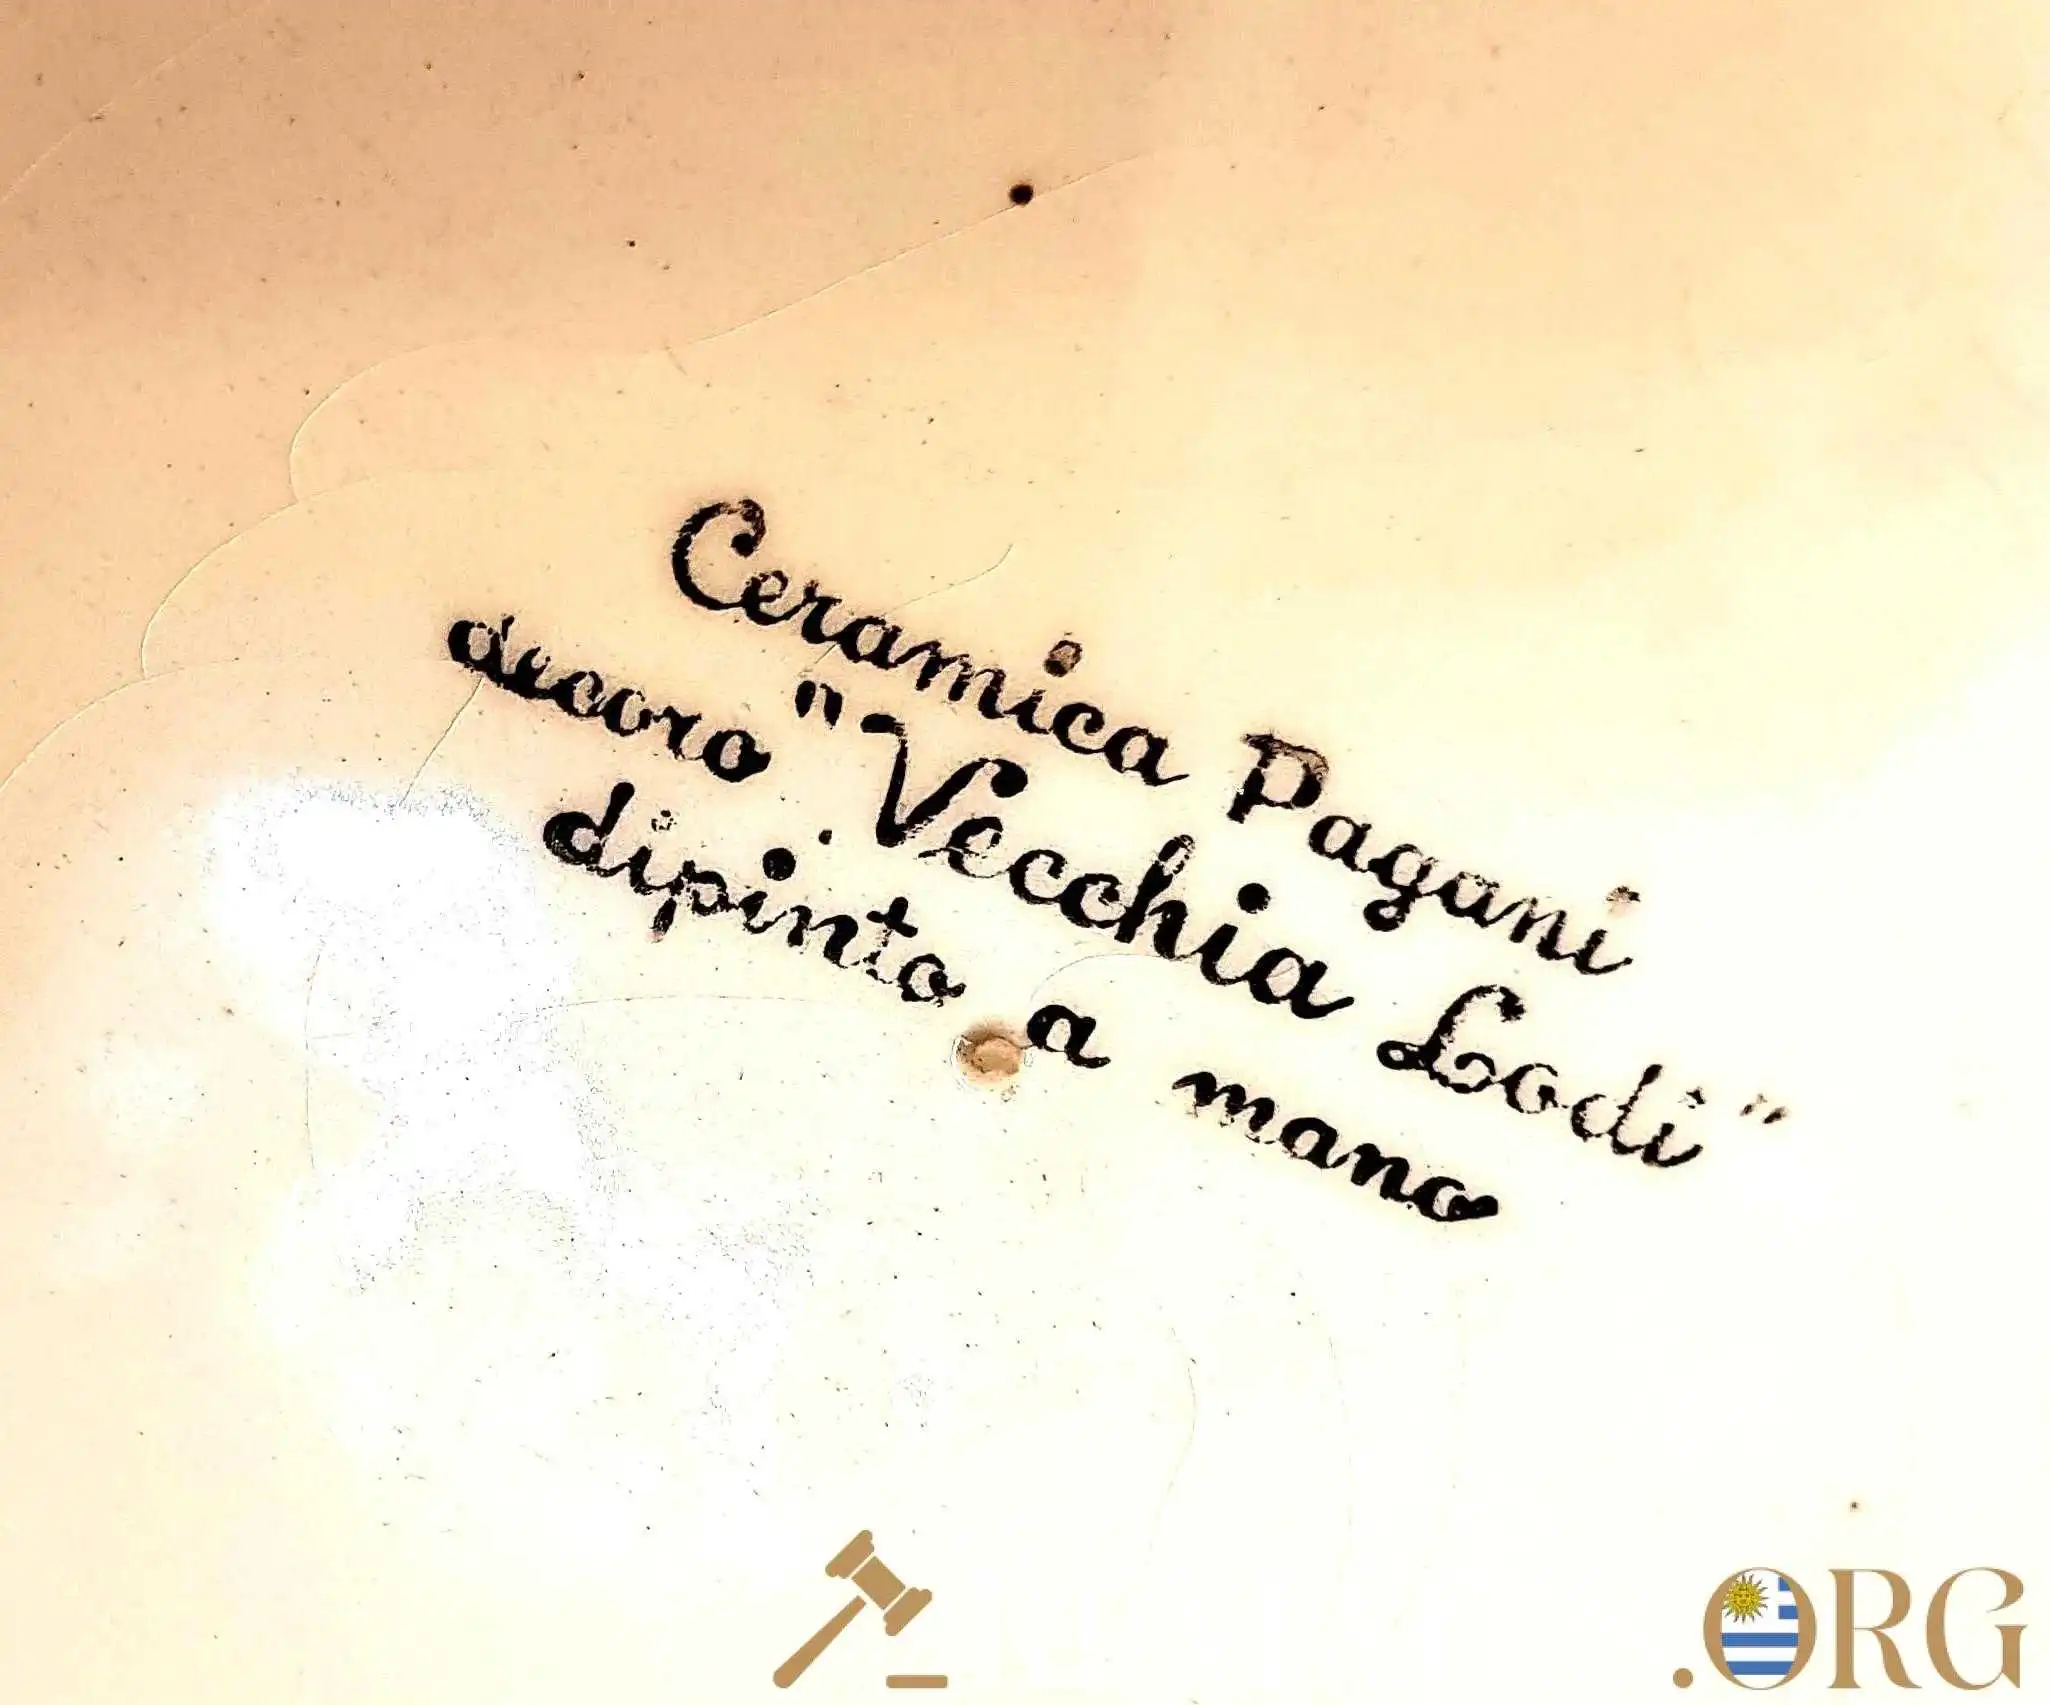 Ceramica Pagani
decoro "Vecchia Lodi"
dipinto a mano
.ORG